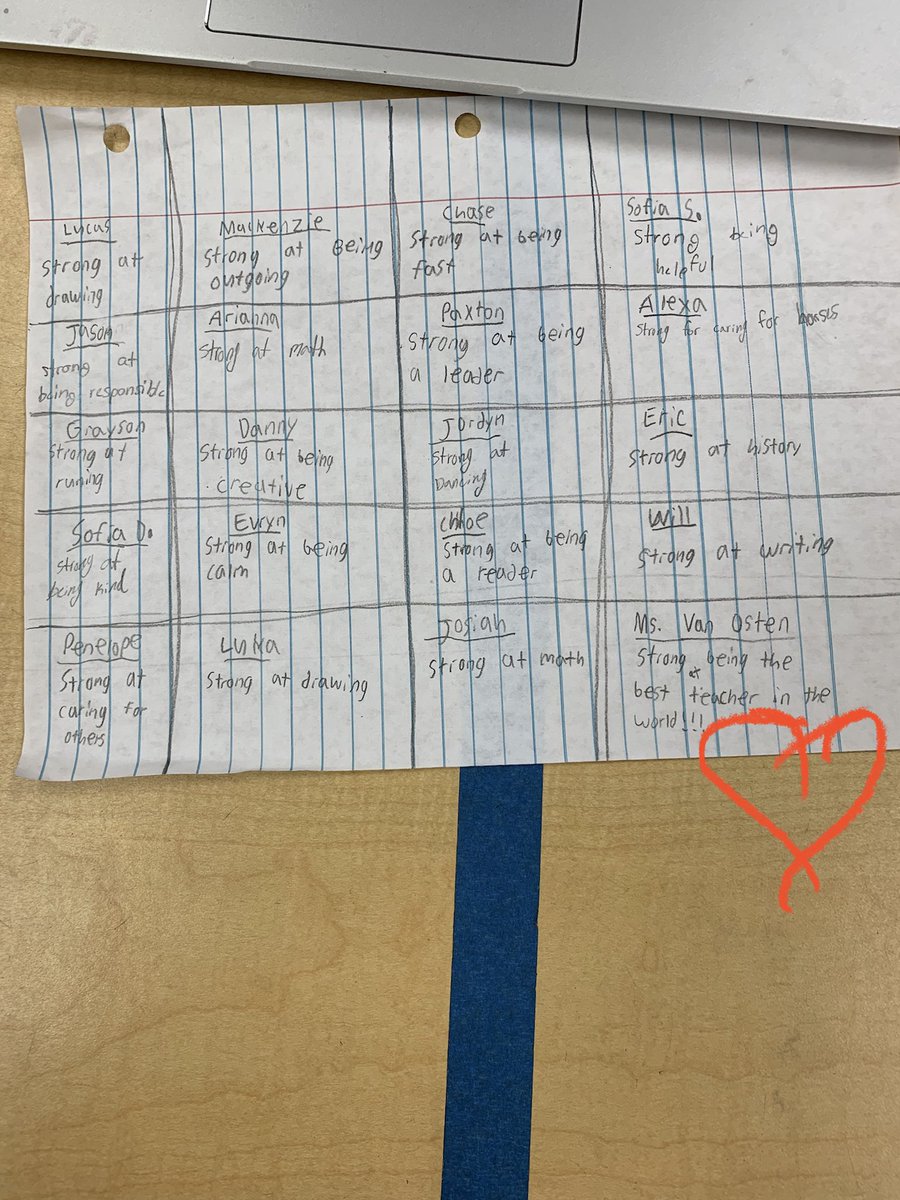 Lucas
Strong at
drawing
Mackenzie
Strong at Being
outgoing
Chase
Strong at being
fast
Sofia S.
Strong being
helpful
Jason
strong at
being responsible
Arianna
Strong at math
Paxton
Strong at being
a leader
Alexa
Strong for caring for horses
Grayson
Strong at
runing
Danny
Strong at being
creative
Jordyn
Strong at
Dancing
Eric
Strong at history
Sofia D.
strong at
being kind
Evryn
Strong at being
calm
Chloe
Strong at being
a reader
Will
Strong at writing
Penelope
Strong at
caring for
others
Luka
Strong at drawing
Josiah
Strong at math
Ms. Van Osten
Strong at being the
best teacher in the
world!!!